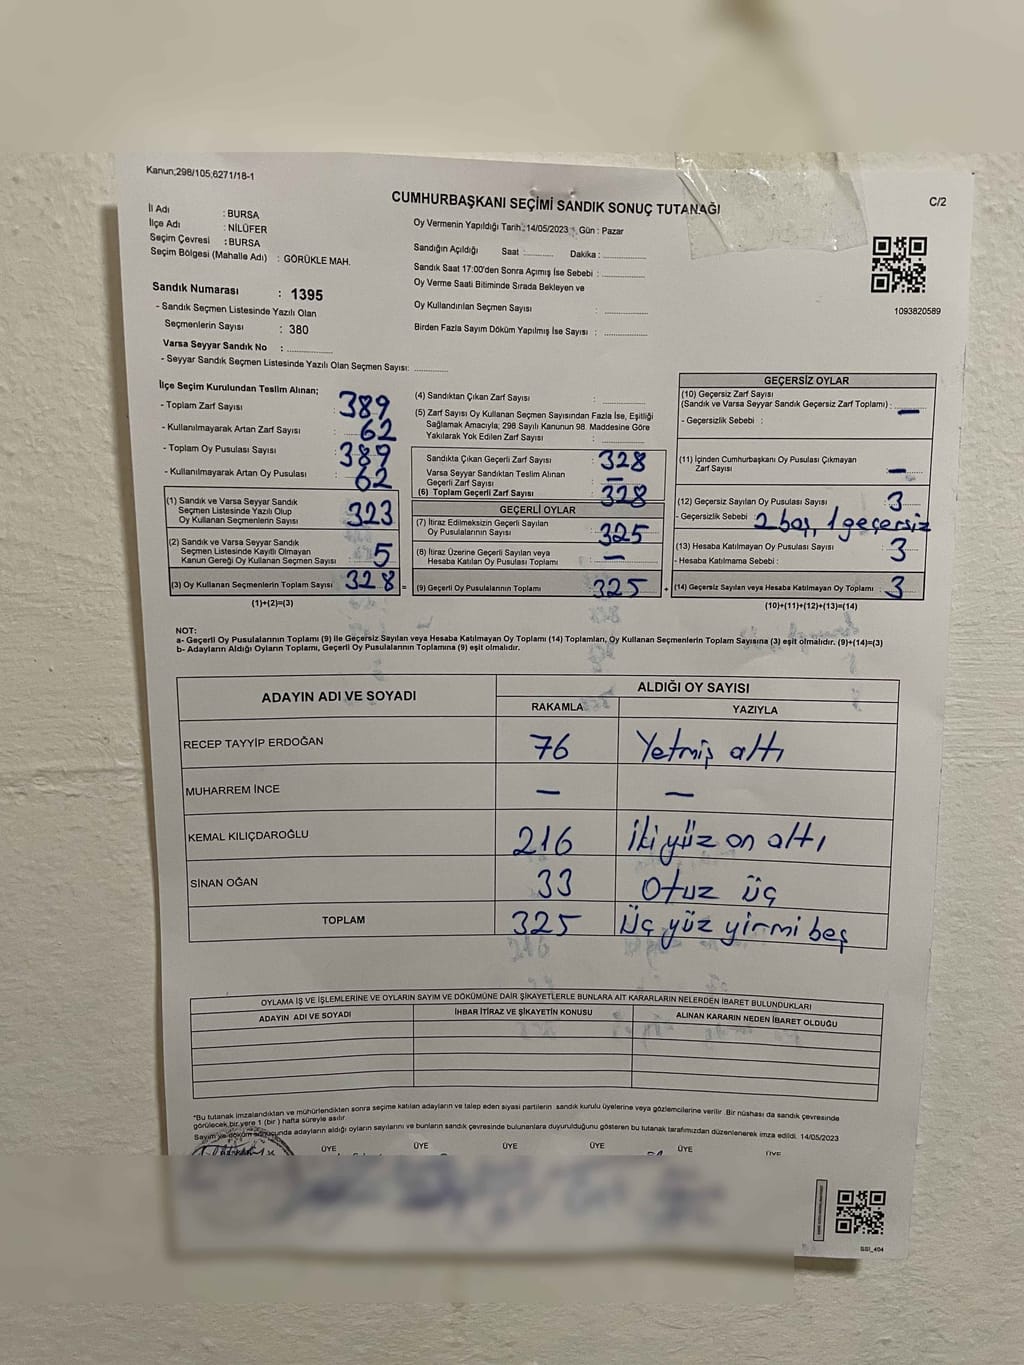 Kanun;298/105;6271/18-1
CUMHURBAŞKANI SEÇİMİ SANDIK SONUÇ TUTANAĞI
C/2
İl Adı : BURSA
İlçe Adı : NİLÜFER
Seçim Çevresi : BURSA
Seçim Bölgesi (Mahalle Adı) : GÖRÜKLE MAH.
Sandık Numarası : 1395
- Sandık Seçmen Listesinde Yazılı Olan
Seçmenlerin Sayısı : 380
Varsa Seyyar Sandık No :
- Seyyar Sandık Seçmen Listesinde Yazılı Olan Seçmen Sayısı:
Oy Vermenin Yapıldığı Tarih: 14/05/2023 Gün : Pazar
Sandığın Açıldığı Saat : Dakika :
Sandık Saat 17:00'den Sonra Açımış İse Sebebi :
Oy Verme Saati Bitiminde Sırada Bekleyen ve
Oy Kullandırılan Seçmen Sayısı :
Birden Fazla Sayım Döküm Yapılmış İse Sayısı :
1093820589
İlçe Seçim Kurulundan Teslim Alınan;
- Toplam Zarf Sayısı : 389
- Kullanılmayarak Artan Zarf Sayısı : 62
- Toplam Oy Pusulası Sayısı : 389
- Kullanılmayarak Artan Oy Pusulası : 62
(1) Sandık ve Varsa Seyyar Sandık
Seçmen Listesinde Yazılı Olup
Oy Kullanan Seçmenlerin Sayısı 323
(2) Sandık ve Varsa Seyyar Sandık
Seçmen Listesinde Kayıtlı Olmayan
Kanun Gereği Oy Kullanan Seçmen Sayısı 5
(3) Oy Kullanan Seçmenlerin Toplam Sayısı 328 =
(1)+(2)=(3)
(4) Sandıktan Çıkan Zarf Sayısı :
(5) Zarf Sayısı Oy Kullanan Seçmen Sayısından Fazla İse, Eşitliği
Sağlamak Amacıyla; 298 Sayılı Kanunun 98. Maddesine Göre
Yakılarak Yok Edilen Zarf Sayısı :
Sandıkta Çıkan Geçerli Zarf Sayısı : 328
Varsa Seyyar Sandıktan Teslim Alınan
Geçerli Zarf Sayısı : —
(6) Toplam Geçerli Zarf Sayısı : 328
GEÇERLİ OYLAR
(7) İtiraz Edilmeksizin Geçerli Sayılan
Oy Pusulalarının Sayısı : 325
(8) İtiraz Üzerine Geçerli Sayılan veya
Hesaba Katılan Oy Pusulası Toplamı : —
(9) Geçerli Oy Pusulalarının Toplamı : 325 +
GEÇERSİZ OYLAR
(10) Geçersiz Zarf Sayısı
(Sandık ve Varsa Seyyar Sandık Geçersiz Zarf Toplamı) : —
- Geçersizlik Sebebi :
(11) İçinden Cumhurbaşkanı Oy Pusulası Çıkmayan
Zarf Sayısı : —
(12) Geçersiz Sayılan Oy Pusulası Sayısı : 3
- Geçersizlik Sebebi : 2 boş, 1 geçersiz
(13) Hesaba Katılmayan Oy Pusulası Sayısı : 3
- Hesaba Katılmama Sebebi :
(14) Geçersiz Sayılan veya Hesaba Katılmayan Oy Toplamı : 3
(10)+(11)+(12)+(13)=(14)
NOT:
a- Geçerli Oy Pusulalarının Toplamı (9) ile Geçersiz Sayılan veya Hesaba Katılmayan Oy Toplamı (14) Toplamları, Oy Kullanan Seçmenlerin Toplam Sayısına (3) eşit olmalıdır. (9)+(14)=(3)
b- Adayların Aldığı Oyların Toplamı, Geçerli Oy Pusulalarının Toplamına (9) eşit olmalıdır.
ADAYIN ADI VE SOYADI
ALDIĞI OY SAYISI
RAKAMLA YAZIYLA
RECEP TAYYİP ERDOĞAN 76 Yetmiş altı
MUHARREM İNCE — —
KEMAL KILIÇDAROĞLU 216 İki yüz on altı
SİNAN OĞAN 33 Otuz üç
TOPLAM 325 Üç yüz yirmi beş
OYLAMA İŞ VE İŞLEMLERİNE VE OYLARIN SAYIM VE DÖKÜMÜNE DAİR ŞİKAYETLERLE BUNLARA AİT KARARLARIN NELERDEN İBARET BULUNDUKLARI
ADAYIN ADI VE SOYADI İHBAR İTİRAZ VE ŞİKAYETİN KONUSU ALINAN KARARIN NEDEN İBARET OLDUĞU
*Bu tutanak imzalandıktan ve mühürlendikten sonra seçime katılan adayların ve talep eden siyasi partilerin sandık kurulu üyelerine veya gözlemcilerine verilir. Bir nüshası da sandık çevresinde
görülecek bir yere 1 (bir) hafta süreyle asılır.
Sayım ve döküm sonucunda adayların aldığı oyların sayılarını ve bunların sandık çevresinde bulunanlara duyurulduğunu gösteren bu tutanak tarafımızdan düzenlenerek imza edildi. 14/05/2023
ÜYE ÜYE ÜYE ÜYE ÜYE ÜYE
SSI_404